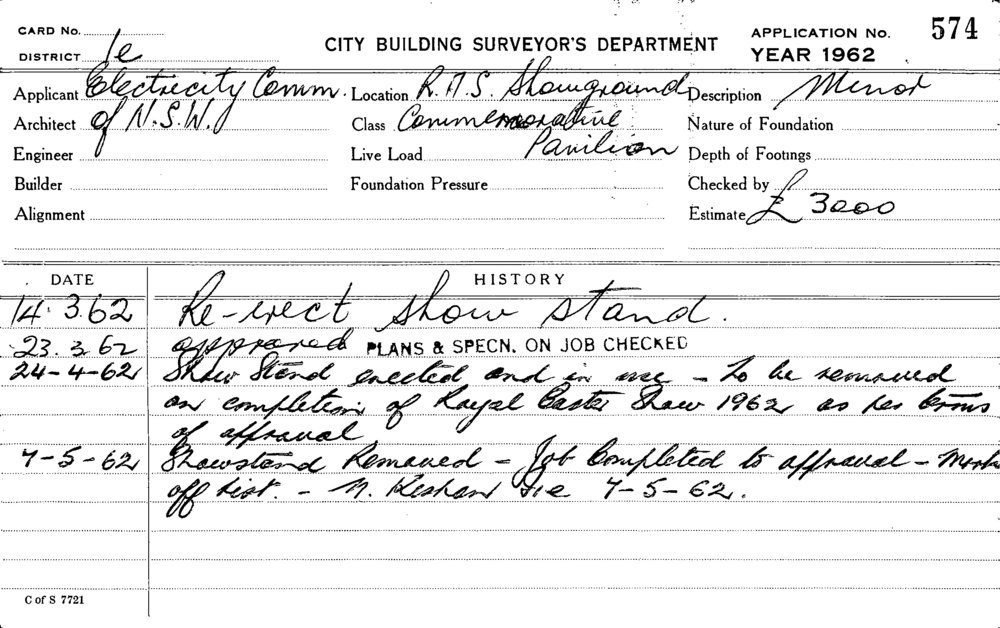 CARD No. CITY BUILDING SURVEYOR'S DEPARTMENT APPLICATION No. 574
DISTRICT 1e YEAR 1962
Applicant Electricity Comm. Location R.A.S. Showground Description Minor
Architect of N.S.W. Class Commemorative Nature of Foundation
Engineer Live Load Pavilion Depth of Footings
Builder Foundation Pressure Checked by
Alignment Estimate £ 3000
DATE HISTORY
14.3.62 Re-erect show stand.
23.3.62 approved PLANS & SPECN. ON JOB CHECKED
24-4-62 Show Stand erected and in use - To be removed
on completion of Royal Easter Show 1962 as per terms
of approval
7-5-62 Showstand Removed - Job Completed to approval - Mark
off list. - 7-5-62.
C of S 7721